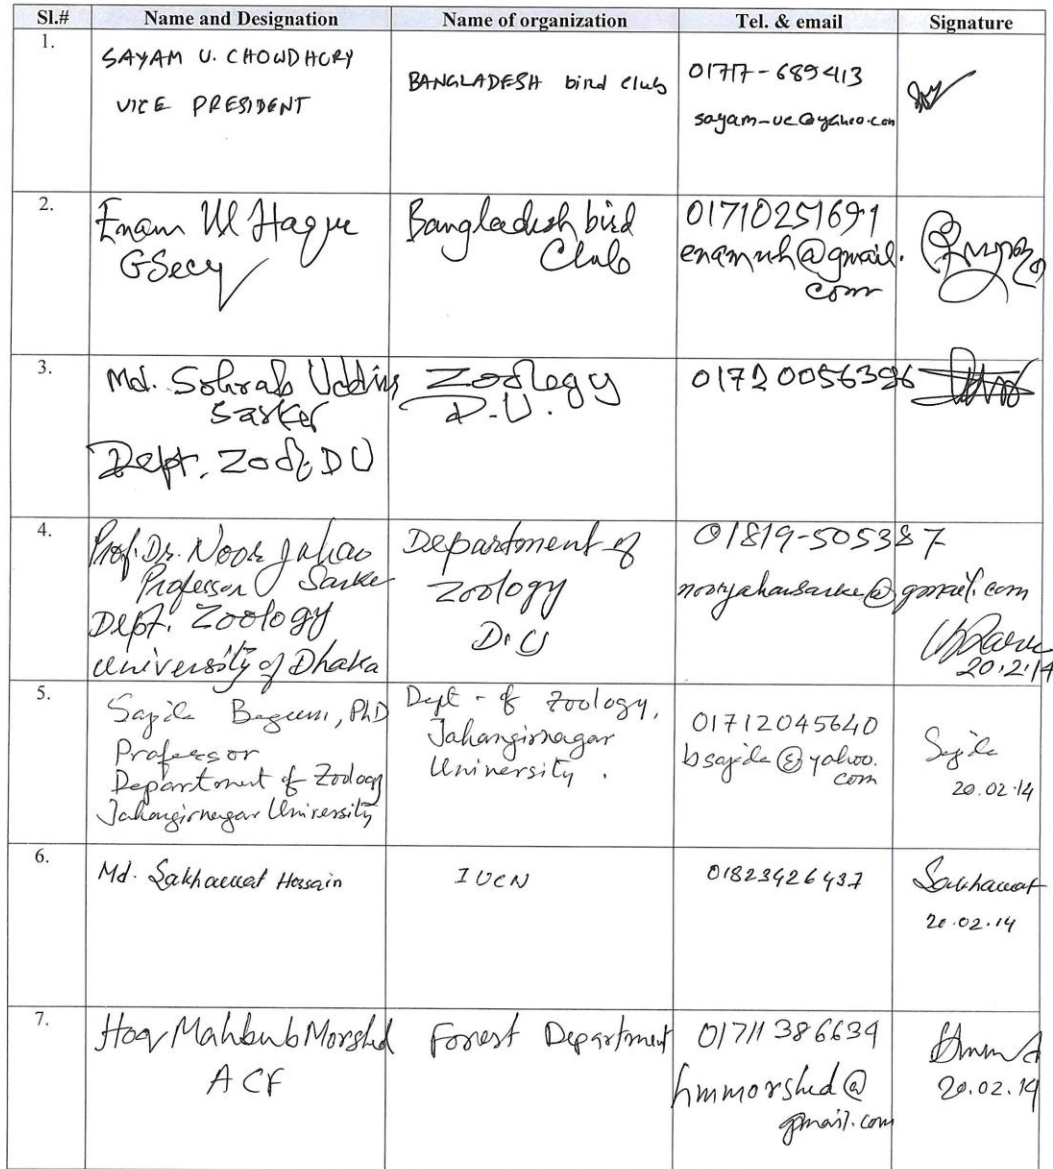 Sl.# Name and Designation Name of organization Tel. & email Signature
1.
SAYAM U. CHOWDHURY
VICE PRESIDENT
BANGLADESH bird club
01717-689413
sayam_uc@yahoo.com
2.
Enam Ul Haque
GSecy
Bangladesh bird
Club
01710251691
enamuh@gmail.
com
3.
Md. Sohrab Uddin
Sarker
Dept. Zool, DU
Zoology
D.U.
01720056396
4.
Prof. Dr. Noor Jahan
Professor Sarker
Dept. Zoology
University of Dhaka
Department of
Zoology
D.U
01819-505387
noorjahansarker@gmail.com
20.2.14
5.
Sajida Begum, PhD
Professor
Department of Zoology
Jahangirnagar University
Dept - of Zoology,
Jahangirnagar
University.
01712045640
bsajida@yahoo.
com
Sajida
20.02.14
6.
Md. Sakhawat Hossain
IUCN
01823426437
Sakhawat
20.02.14
7.
Hoq Mahbub Morshed
ACF
Forest Department
01711386634
hmmorshed@
gmail.com
20.02.14